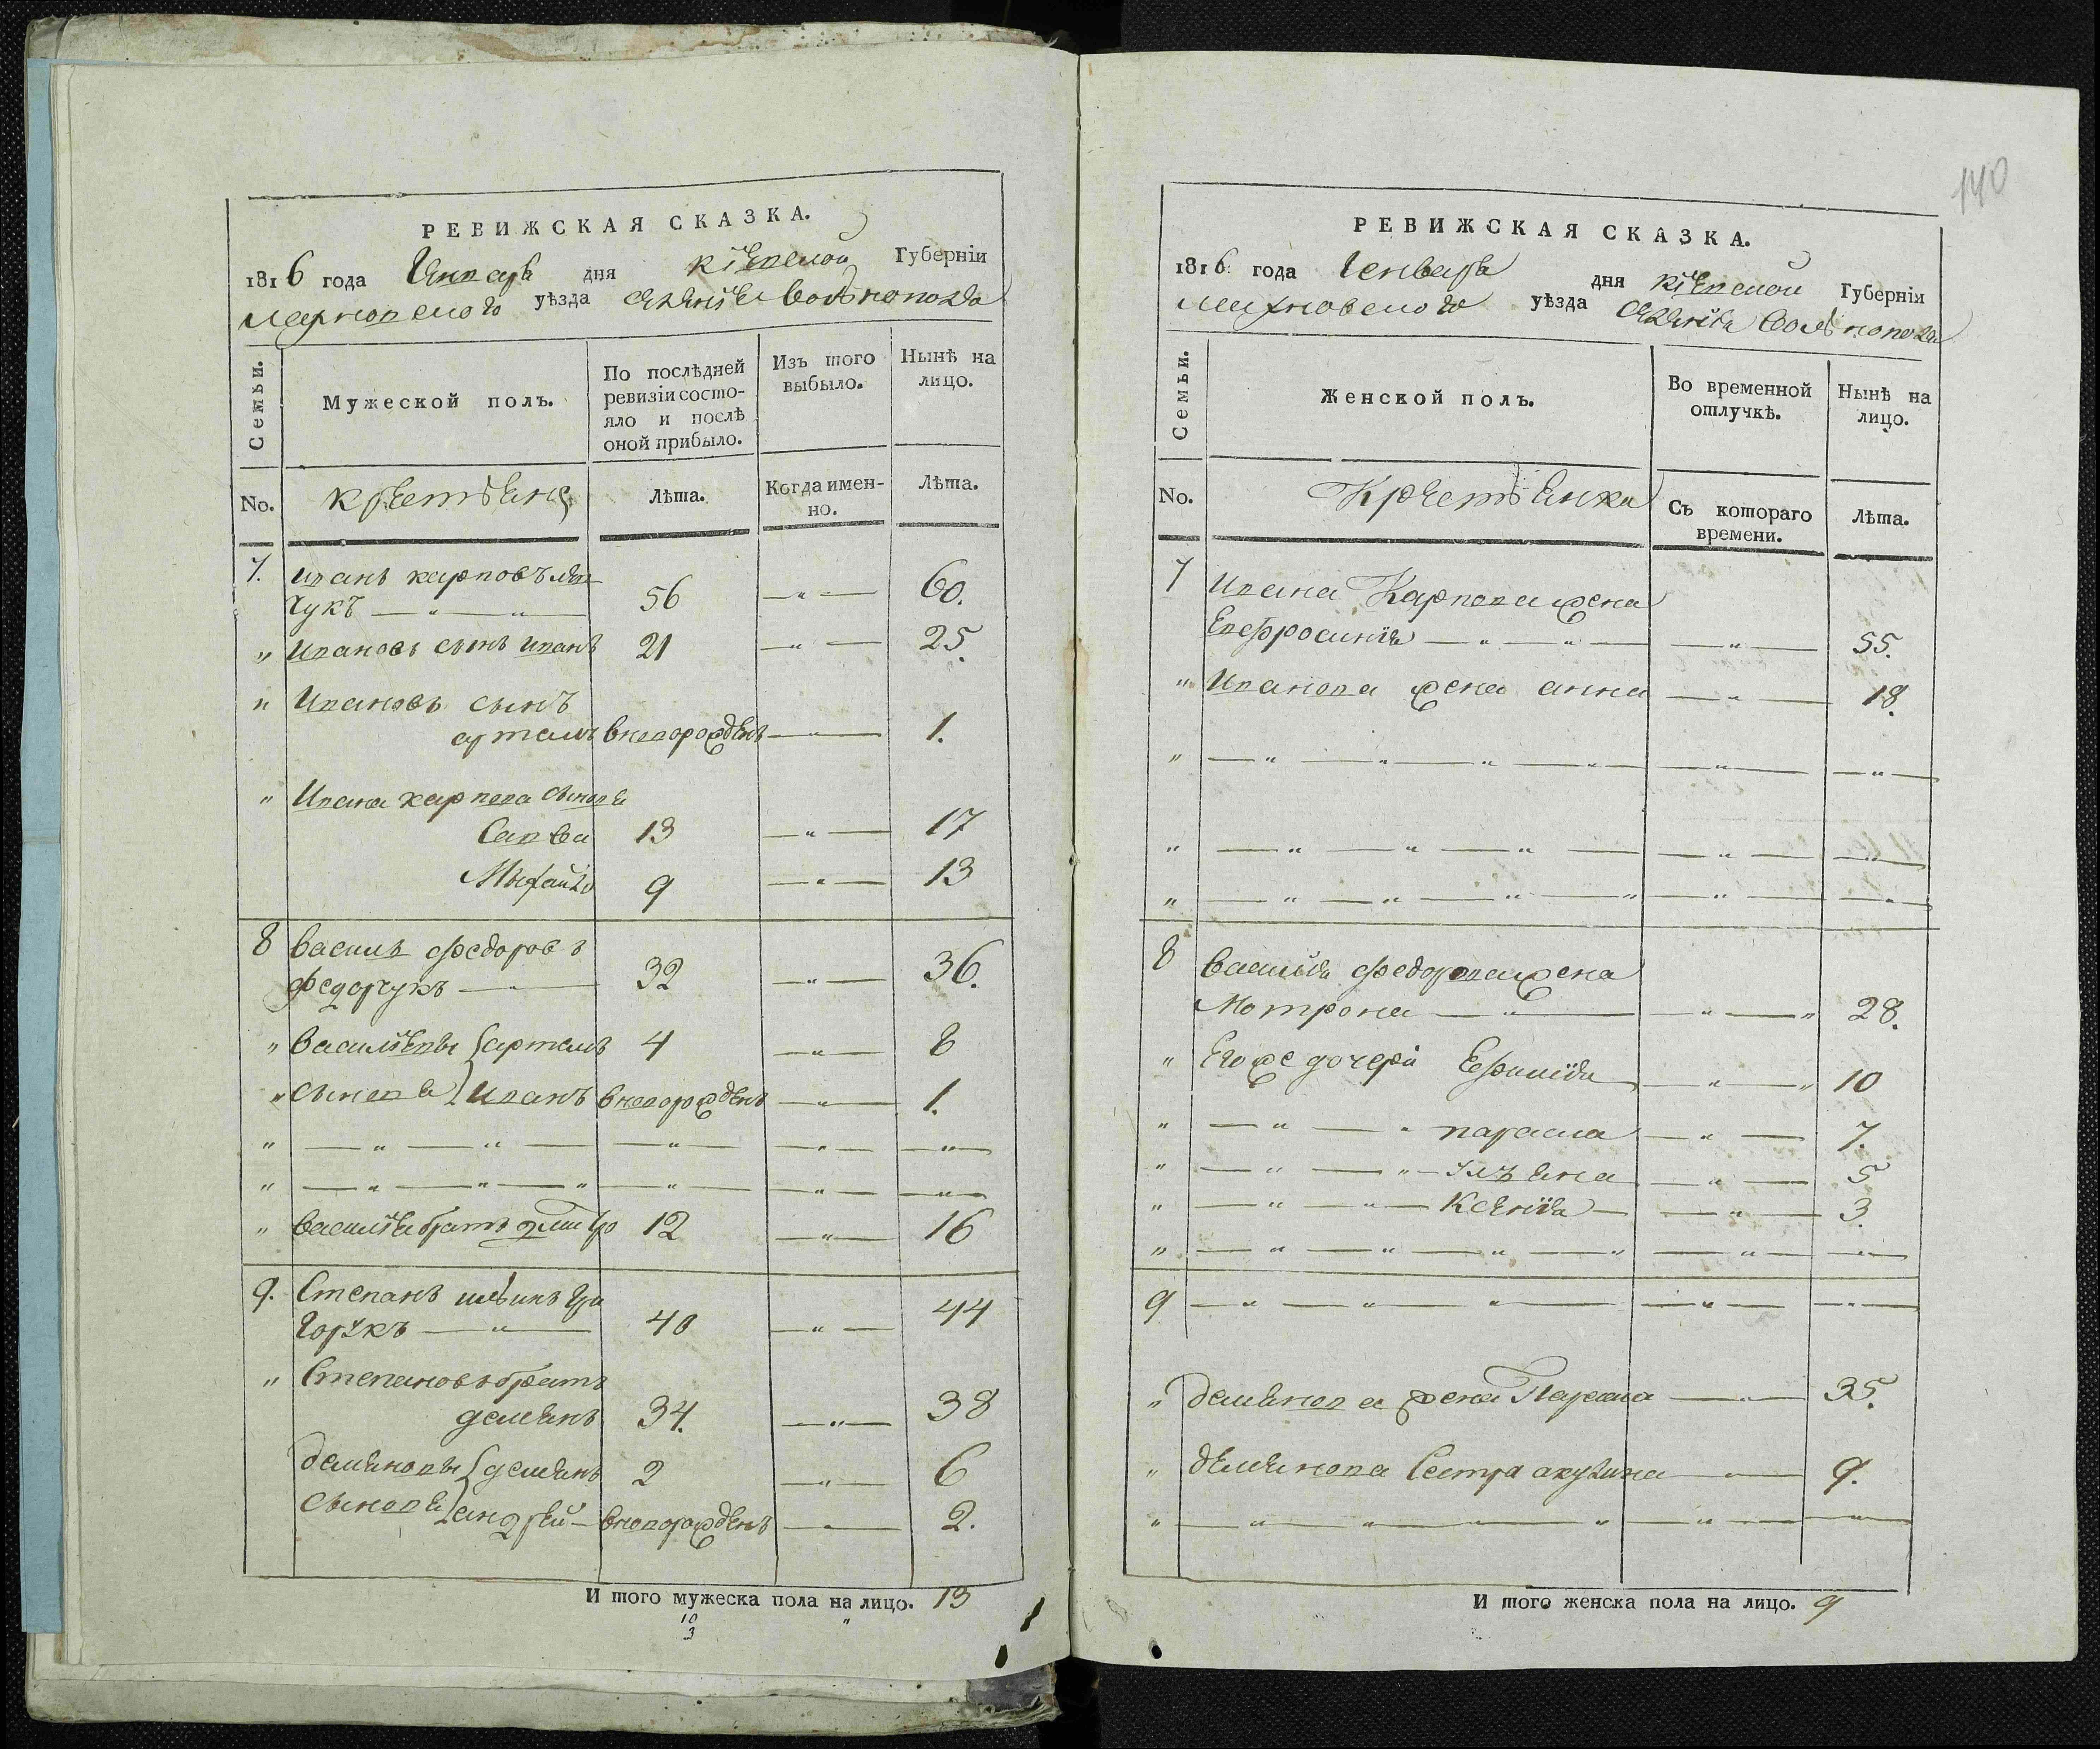 РЕВИЖСКАЯ СКАЗКА.
1816 года Генваря дня кіевской Губерніи
махновского уѣзда селенія Волѣнополя
Семьи.
Мужеской полъ.
По послѣдней ревизіи состояло и послѣ оной прибыло.
Изъ того выбыло.
Нынѣ на лицо.
No. крестьяне Лѣта. Когда именно. Лѣта.
7. Иванъ карповъ
чукъ 56 60.
Ивановъ сынъ иванъ 21 25.
Ивановъ сынъ
артемъ вноворожденъ 1.
Ивана карпова сыновя
Савва 13 17
Михайло 9 13
8 василь федоровъ
федорчукъ 32 36.
василіевы артемъ 4 8
сыновя Иванъ вноворожденъ 1.
василія братъ дмитро 12 16
9. Степанъ ильинъ гри
горукъ 40 44
Степановъ братъ
демянъ 34. 38
демяновы демянъ 2 6
сыновя андрей вноворожденъ 2.
И того мужеска пола на лицо. 13
10
3
140
РЕВИЖСКАЯ СКАЗКА.
1816 года Генваря дня кіевской Губерніи
махновского уѣзда селенія Волѣнополя
Семьи.
Женской полъ.
Во временной отлучкѣ.
Нынѣ на лицо.
No. Крестьянка Съ котораго времени. Лѣта.
7 Ивана Карпова жена
Евфросинія 55.
Иванова жена анна 18.
8 василія федорова жена
Мотрона 28.
Егоже дочери Ефимія 10
параска 7.
уляна 5
Ксенія 3.
9
демянова жена Параска 35.
демянова сестра акулина 9.
И того женска пола на лицо. 9